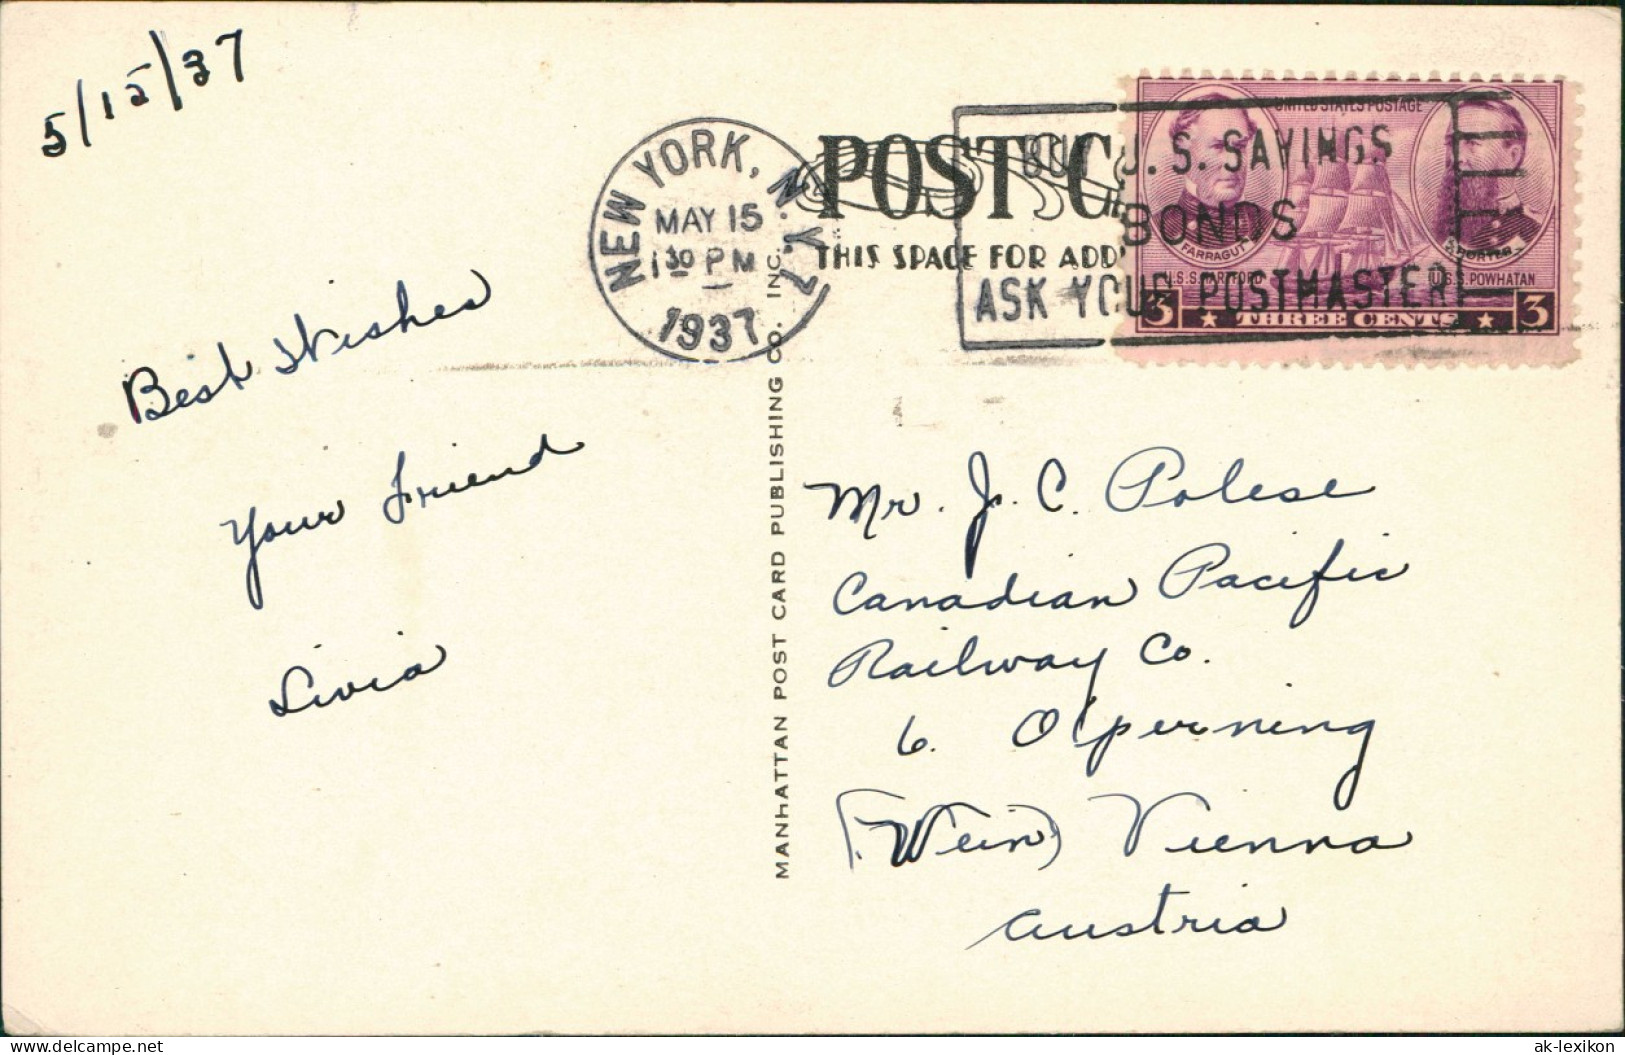 5/15/37
NEW YORK, N.Y. 7
MAY 15
1 30 PM
1937
POST C
THIS SPACE FOR ADD
BUY U.S. SAVINGS
BONDS
ASK YOUR POSTMASTER
UNITED STATES POSTAGE
FARRAGUT
PORTER
U.S.S. HARTFORD
U.S.S. POWHATAN
3 THREE CENTS 3
Best Wishes
Your Friend
Livia
MANHATTAN POST CARD PUBLISHING CO. INC.
Mr. J. C. Polese
Canadian Pacific
Railway Co.
6. Operning
(Wein) Vienna
Austria
delcampe.net
ak-lexikon